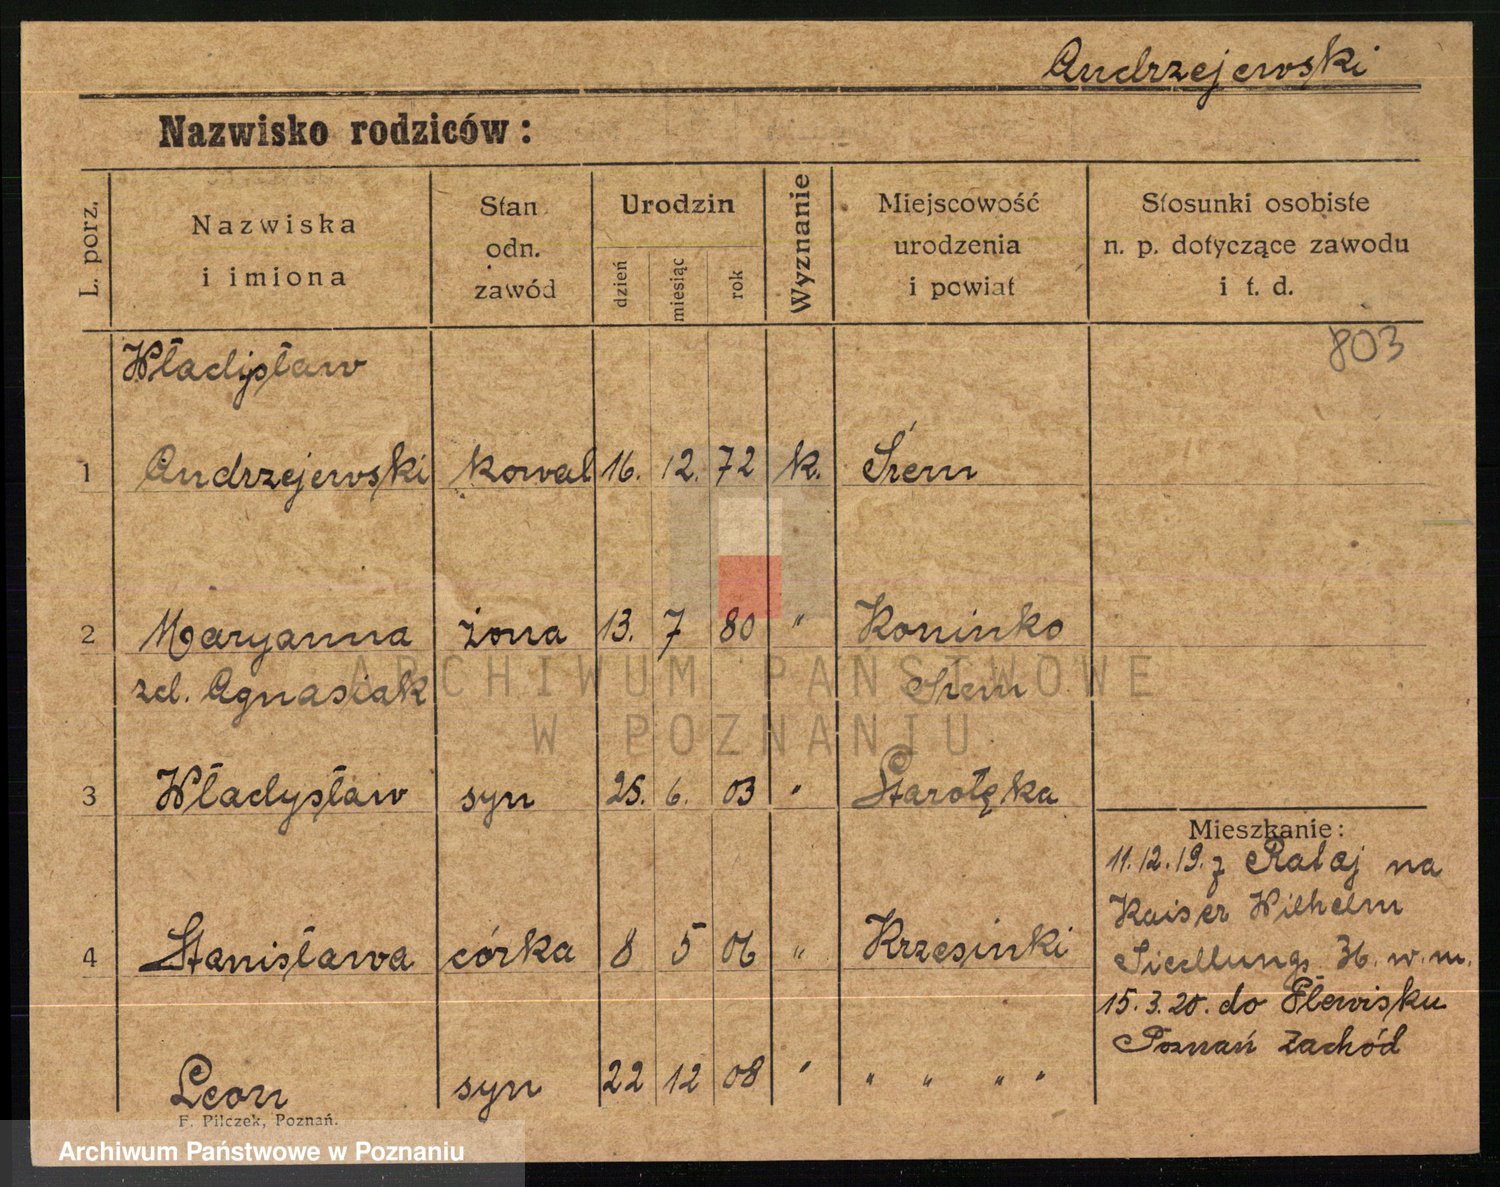 Andrzejewski
Nazwisko rodziców:
L. porz.
Nazwiska
i imiona
Stan
odn.
zawód
Urodzin
dzień
miesiąc
rok
Wyznanie
Miejscowość
urodzenia
i powiat
Stosunki osobiste
n. p. dotyczące zawodu
i t. d.
803
Władysław
1 Andrzejewski kowal 16. 12. 72 k. Śrem
2 Maryanna żona 13. 7 80 " Koninko
zd. Agnasiak Śrem
3 Władysław syn 25. 6. 03 " Starołęka
Mieszkanie:
11.12.19. z Rataj na
Kaiser Wilhelm
Siedlung 36. w. m.
15.3.20. do Plewisku
Poznań Zachód
4 Stanisława córka 8 5 06 " Krzesinki
Leon syn 22 12 08 " " " " "
F. Pilczek, Poznań.
ARCHIWUM PAŃSTWOWE
W POZNANIU
Archiwum Państwowe w Poznaniu